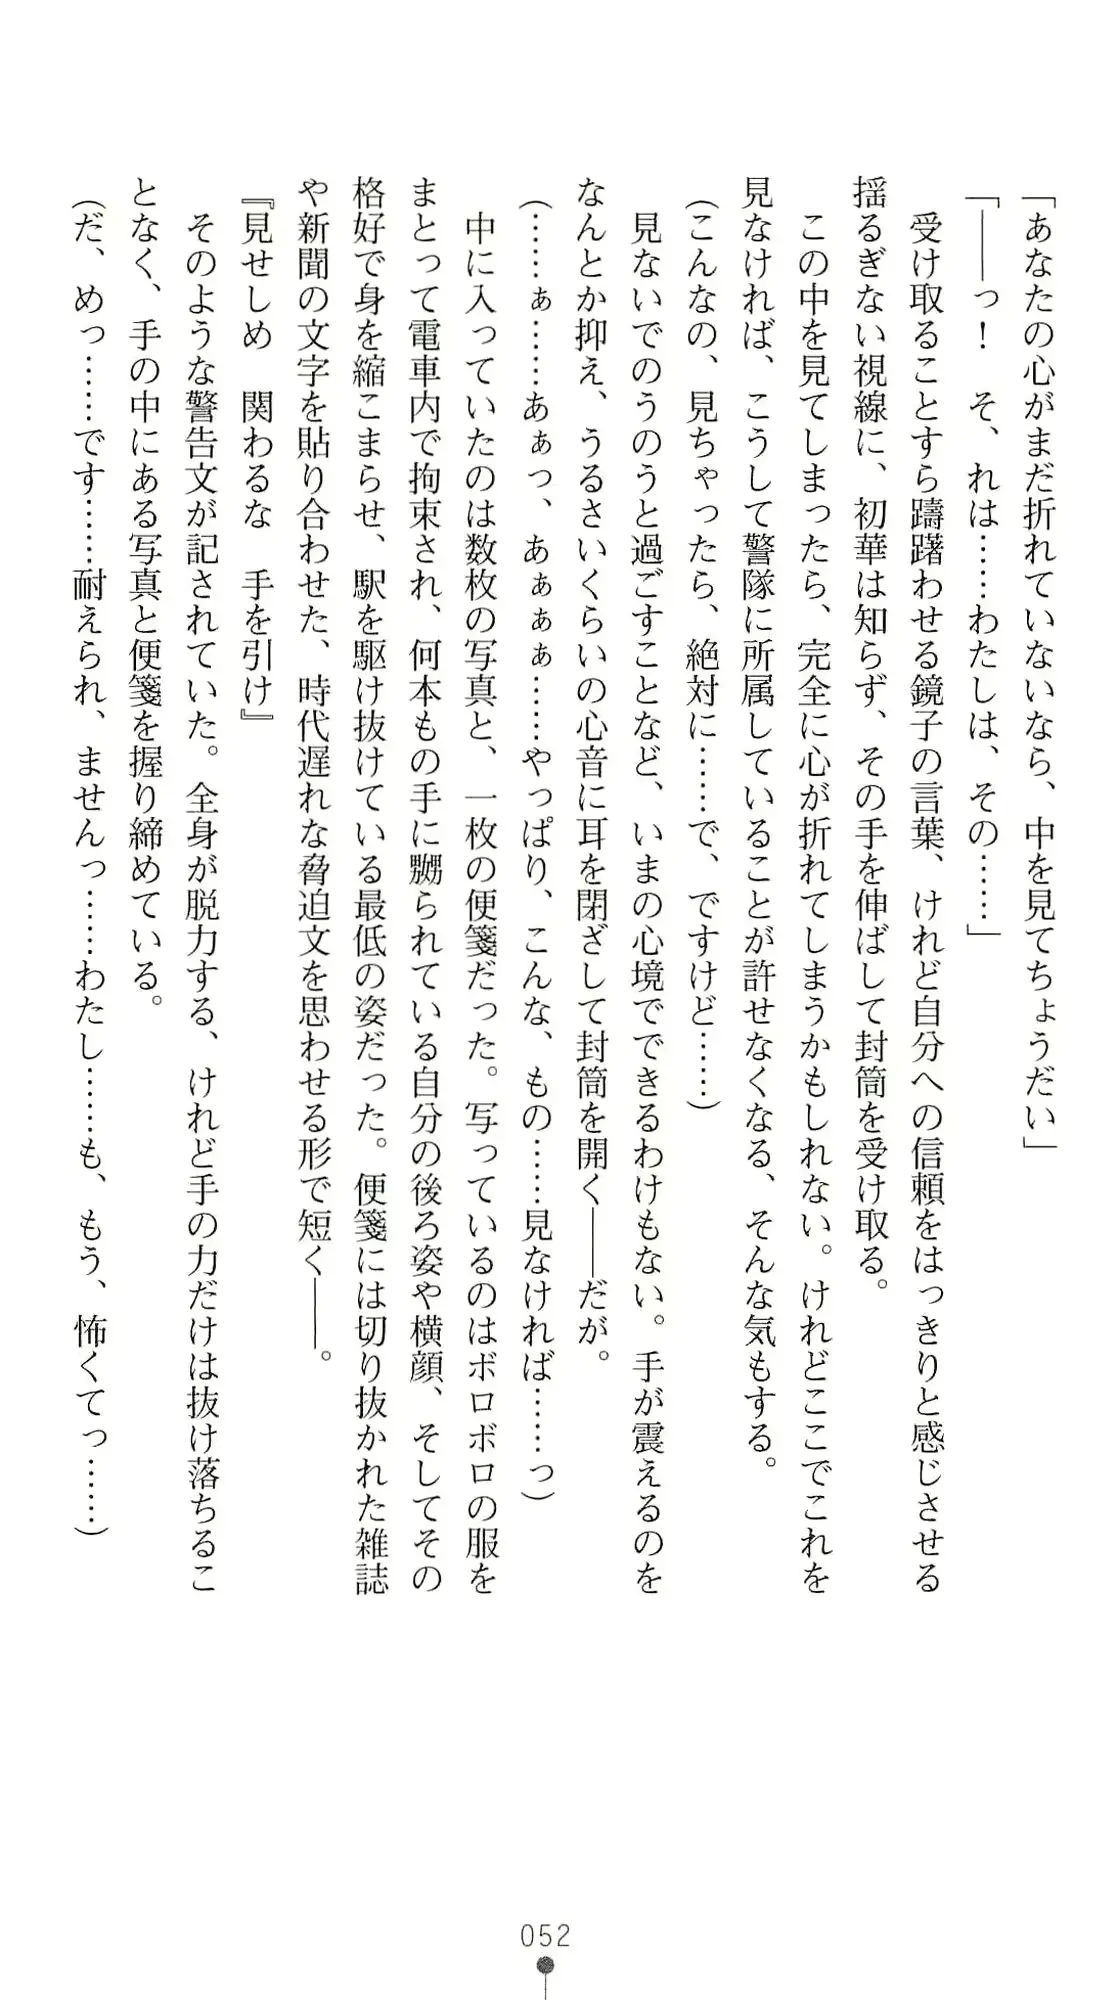 「あなたの心がまだ折れていないなら、中を見てちょうだい」
「――っ！　そ、れは……わたしは、その……」
　受け取ることすら躊躇わせる鏡子の言葉、けれど自分への信頼をはっきりと感じさせる
揺るぎない視線に、初華は知らず、その手を伸ばして封筒を受け取る。
　この中を見てしまったら、完全に心が折れてしまうかもしれない。けれどここでこれを
見なければ、こうして警隊に所属していることが許せなくなる、そんな気もする。
（こんなの、見ちゃったら、絶対に……で、ですけど……）
　見ないでのうのうと過ごすことなど、いまの心境でできるわけもない。手が震えるのを
なんとか抑え、うるさいくらいの心音に耳を閉ざして封筒を開く――だが。
（……ぁ……あぁっ、あぁぁぁ……やっぱり、こんな、もの……見なければ……っ）
　中に入っていたのは数枚の写真と、一枚の便箋だった。写っているのはボロボロの服を
まとって電車内で拘束され、何本もの手に嬲られている自分の後ろ姿や横顔、そしてその
格好で身を縮こまらせ、駅を駆け抜けている最低の姿だった。便箋には切り抜かれた雑誌
や新聞の文字を貼り合わせた、時代遅れな脅迫文を思わせる形で短く――。
『見せしめ　関わるな　手を引け』
　そのような警告文が記されていた。全身が脱力する、けれど手の力だけは抜け落ちるこ
となく、手の中にある写真と便箋を握り締めている。
（だ、めっ……です……耐えられ、ませんっ……わたし……も、もう、怖くてっ……）
052